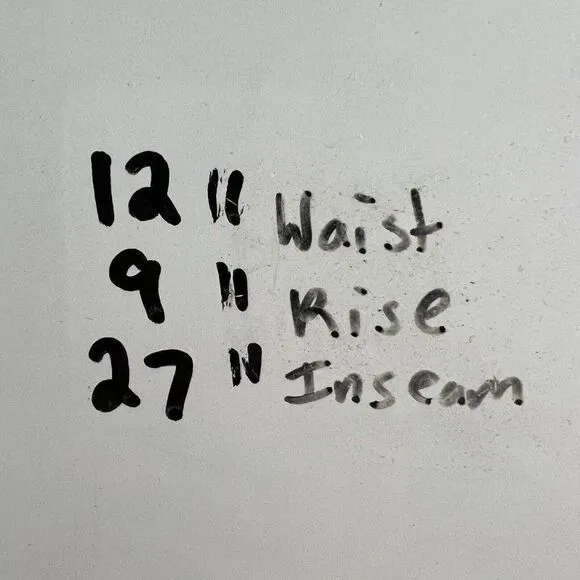 12" Waist
9" Rise
27" Inseam